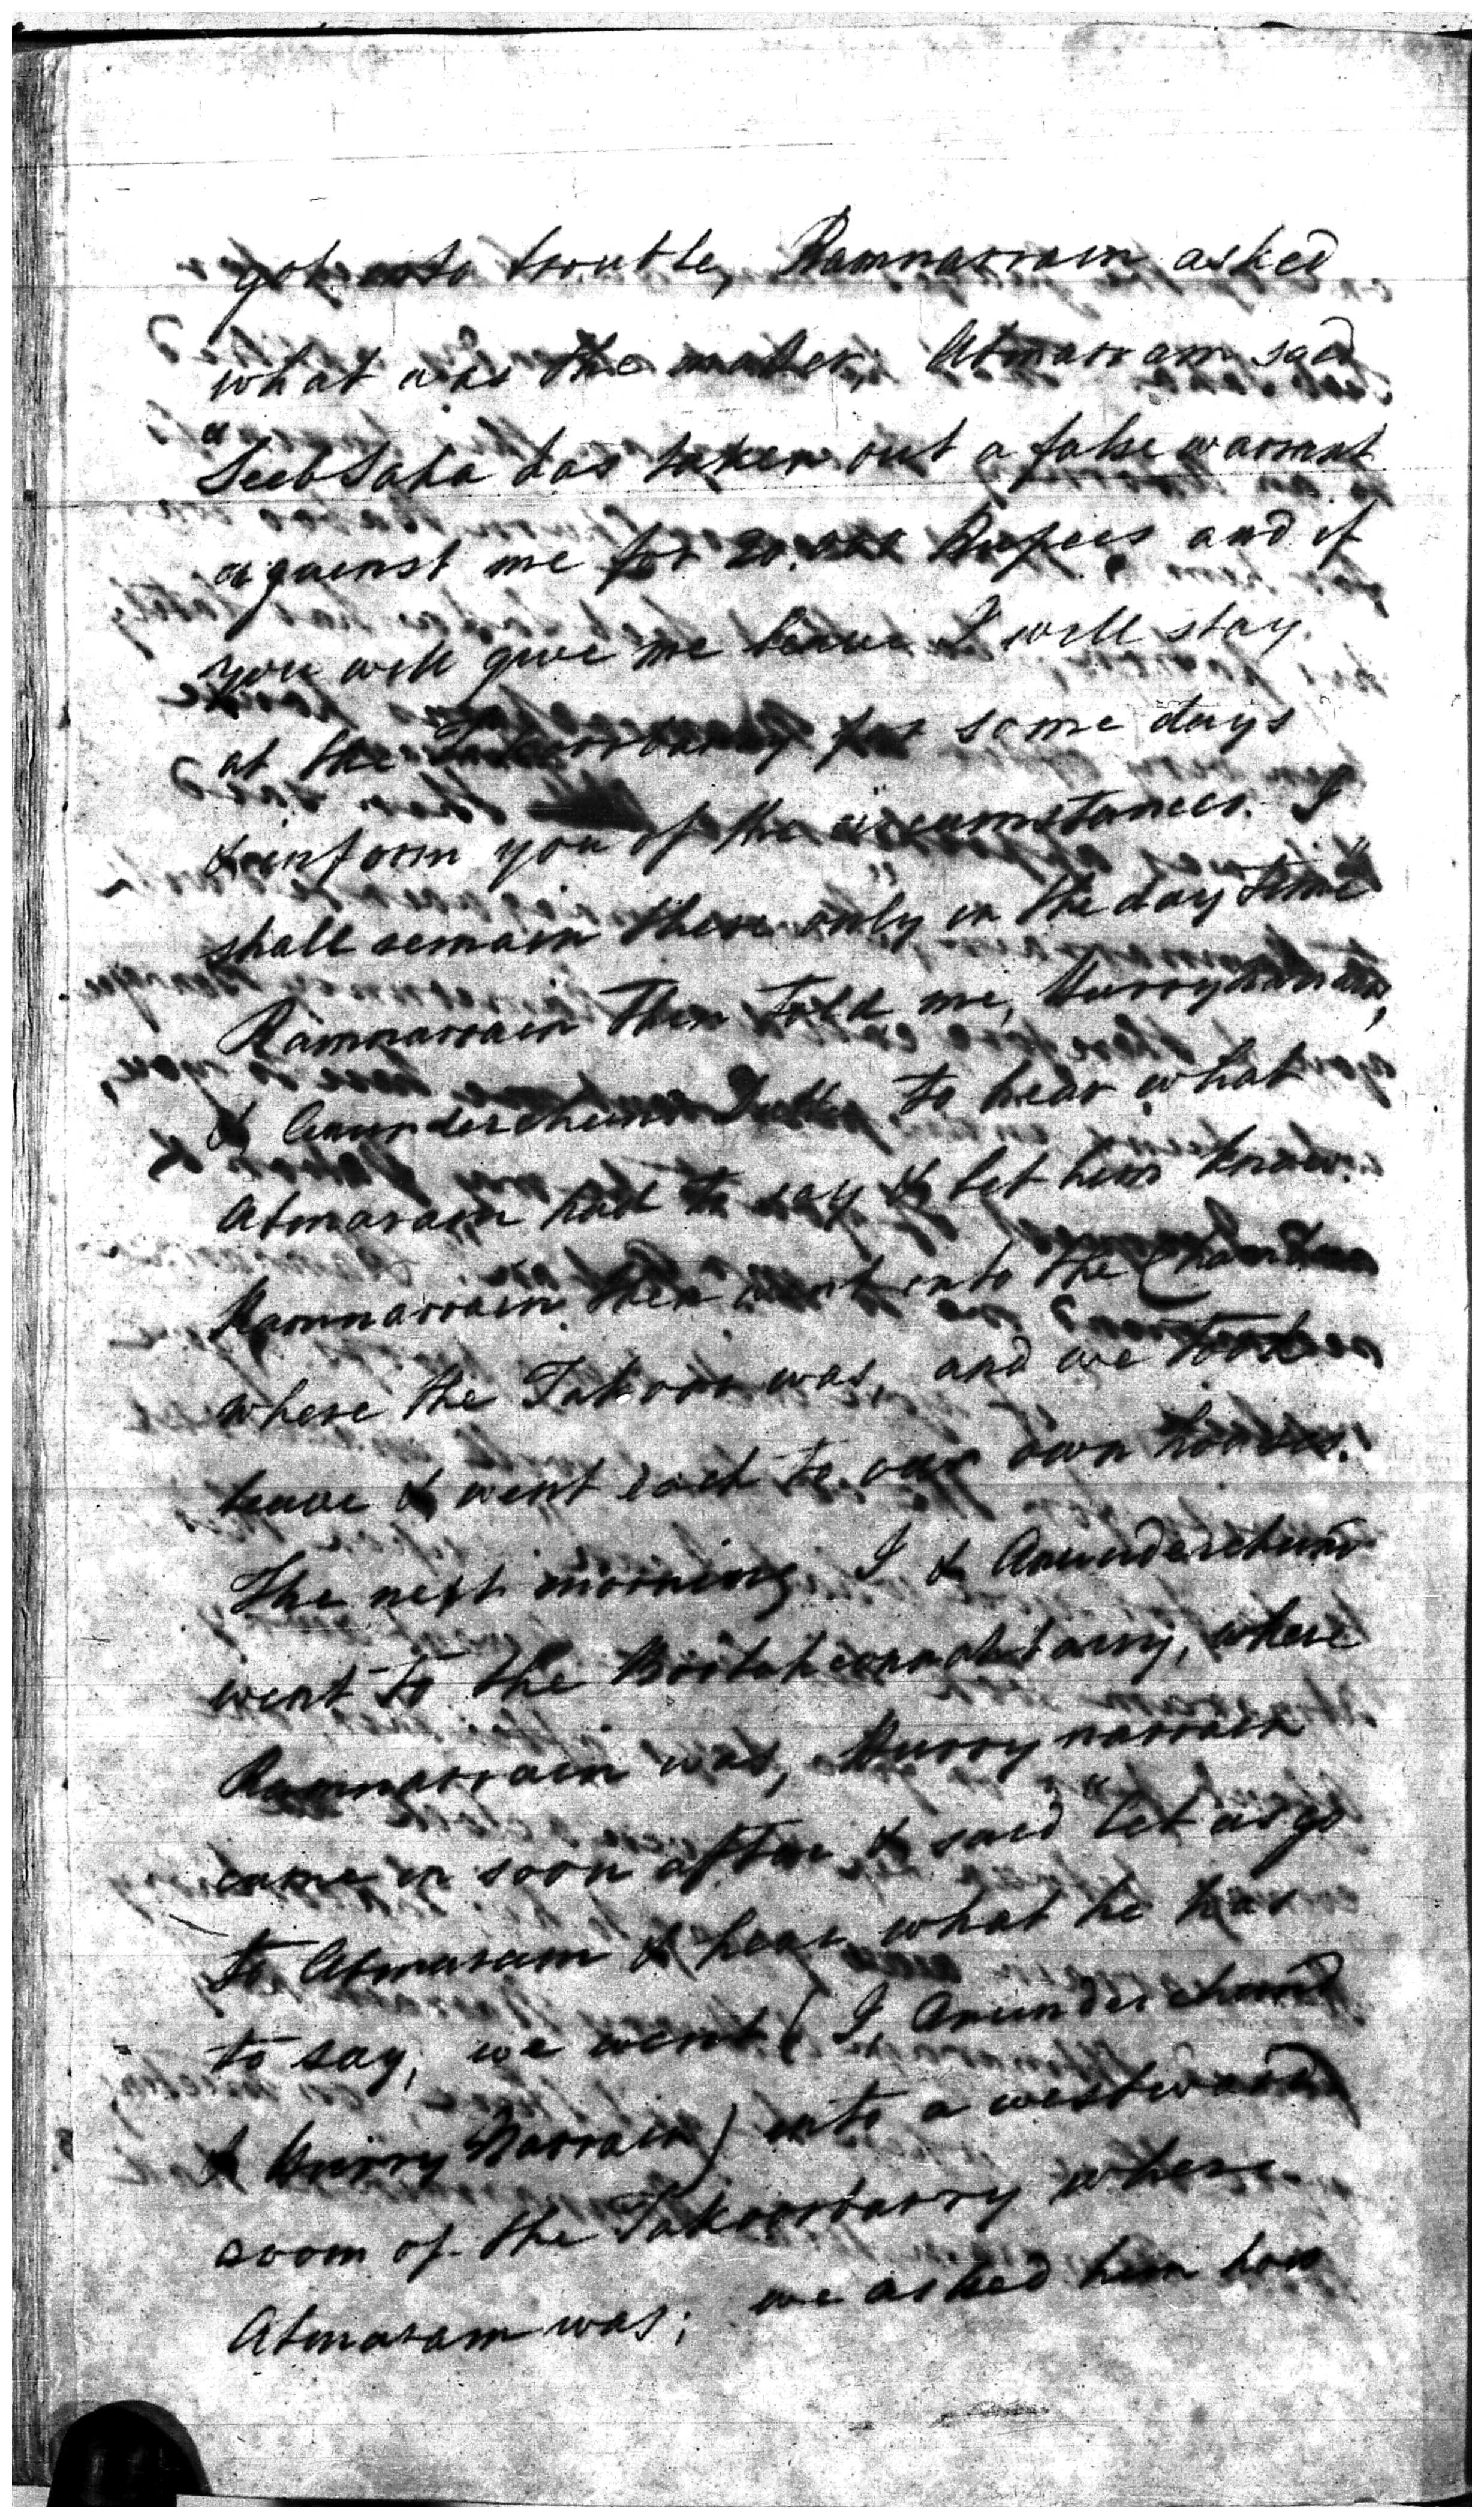 got into trouble, Ramnarrain asked
what was the matter, Atmarram said
"Seeb Saha has taken out a false warrant
against me for 20,000 Rupees and if
you will give me leave I will stay
at the Takoorbarry for some days
& inform you of the circumstances. I
shall remain there only in the day time"
Ramnarrain then told me, Hurrynarrain,
& Anunderchund Dutta to hear what
Atmaram had to say & let him know.
Ramnarrain then went into the
where the Takoor was, and we took
leave & went each to our own houses.
The next morning I & Anunderchund
went to the , where
Ramnarrain was, Hurry narrain
came in soon after & said "let us go
to Atmaram & hear what he has
to say, we went (I, Anunderchund
& Hurry Narrain) into a westward
room of the Takoorbarry where
Atmaram was; we asked him how